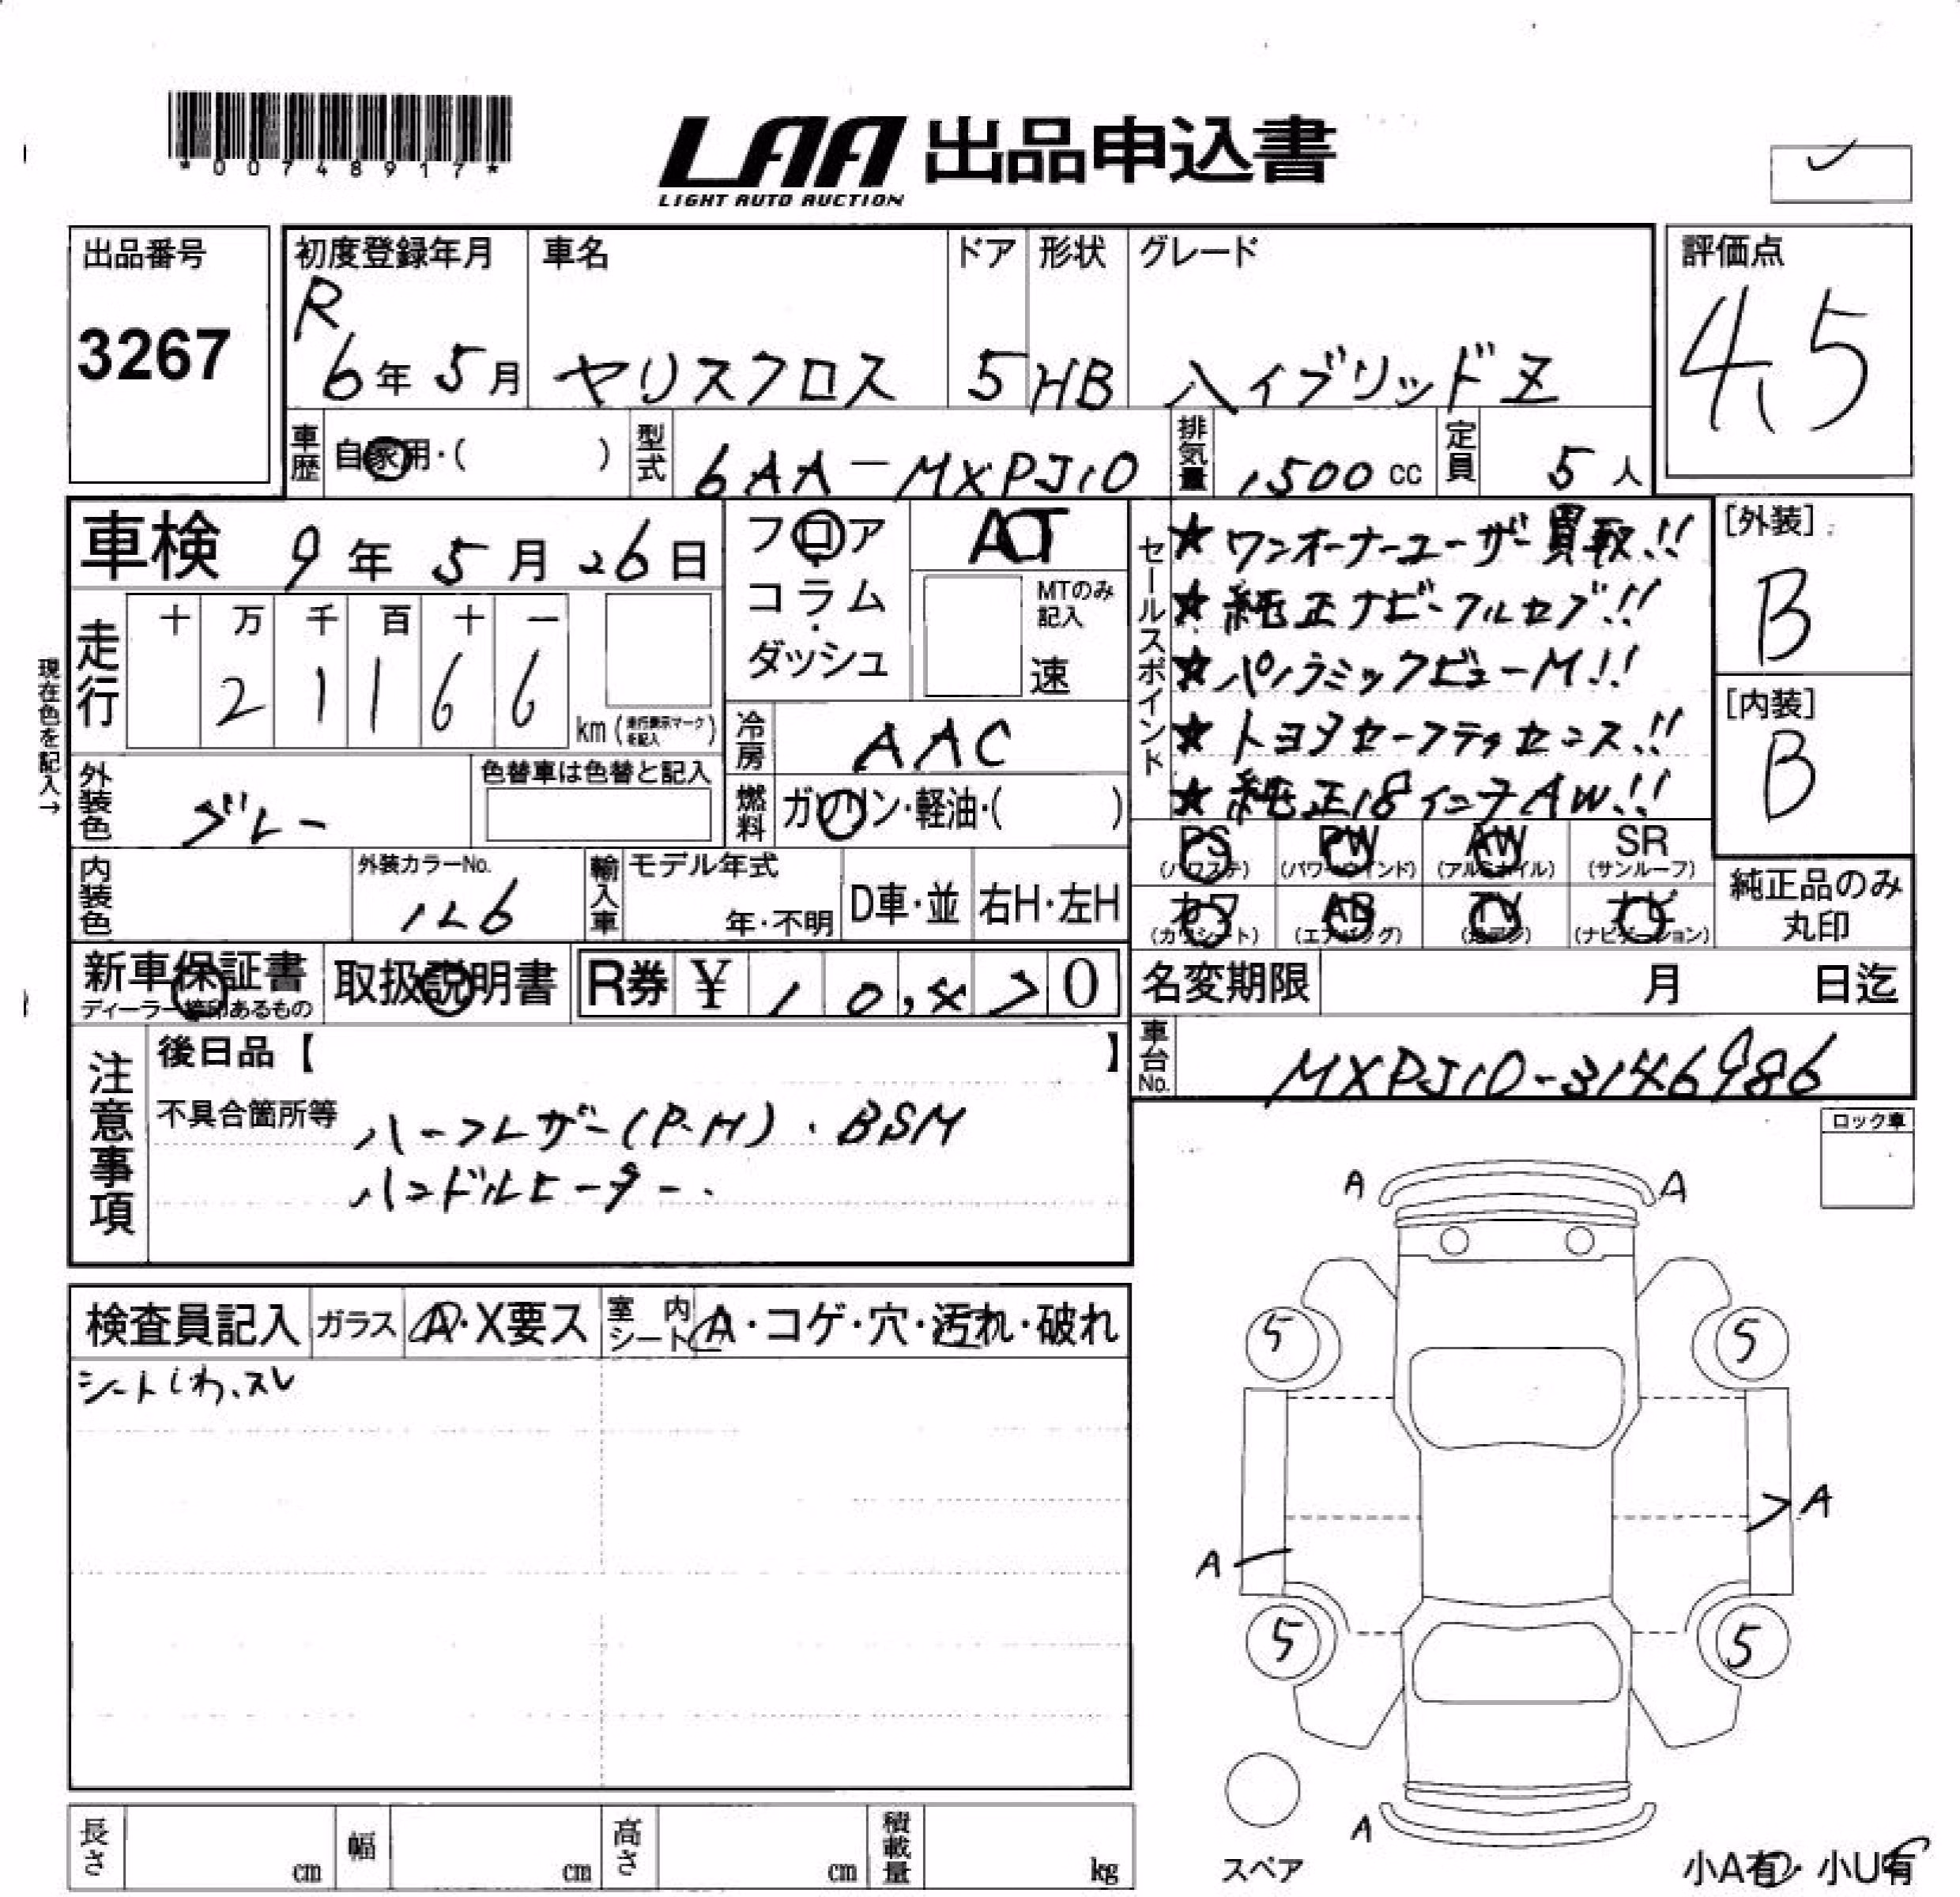 *00748917*
LAA 出品申込書
LIGHT AUTO AUCTION
出品番号
3267
初度登録年月
R
6年 5月
車名
ヤリスクロス
ドア
5
形状
HB
グレード
ハイブリッド Z
評価点
4.5
車歴
自家用・( )
型式
6AA-MXPJ10
排気量
1500 cc
定員
5人
車検 9年 5月 26日
フロア
・
コラム
・
ダッシュ
AT
MTのみ
記入
速
セールスポイント
★ワンオーナーユーザー買取!!
★純正ナビ-フルセグ!!
★パノラミックビューM!!
★トヨタセーフティセンス!!
★純正18インチAW!!
[外装]
B
[内装]
B
現在色を記入→
走行
十 万 千 百 十 一
2 1 1 6 6
km (走行表示マークを記入)
冷房
AAC
燃料
ガソリン・軽油・( )
外装色
グレー
色替車は色替と記入
内装色
外装カラーNo.
1L6
輸入車
モデル年式
年・不明
D車・並
右H・左H
PS
(パワステ)
PW
(パワーウインド)
AW
(アルミホイル)
SR
(サンルーフ)
カワ
(カワシート)
AB
(エアバッグ)
TV
(カラテレ)
ナビ
(ナビゲーション)
純正品のみ
丸印
新車保証書
ディーラー捺印あるもの
取扱説明書
R券 ¥ 1 0, 4 7 0
名変期限 月 日迄
車台No.
MXPJ10-3146986
注意事項
後日品【 】
不具合箇所等
ハーフレザー(P-H)・BSM
ハンドルヒーター.
ロック車
検査員記入
ガラス
A・X要ス
室内シート
A・コゲ・穴・汚れ・破れ
シートしわ、スレ
A A
5 5
A
A
5 5
A
スペア
小A有・小U有
長さ cm
幅 cm
高さ cm
積載量 kg